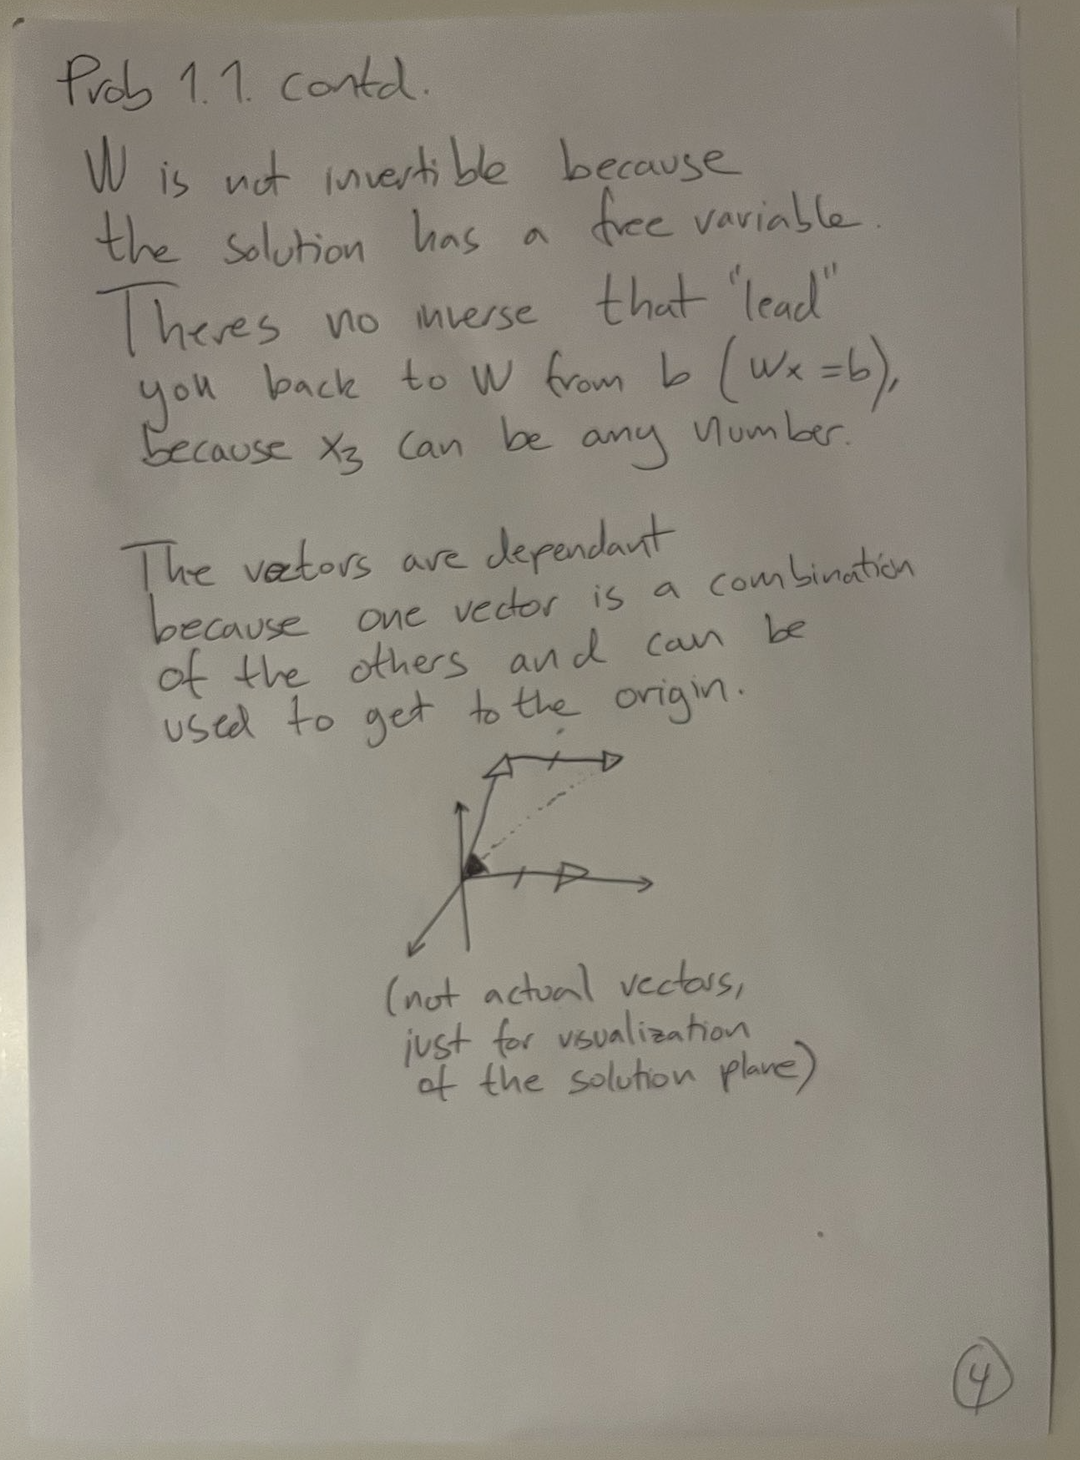 Prob 1.1. contd.
W is not invertible because
the solution has a free variable.
Theres no inverse that "lead"
you back to W from b (Wx = b),
because x3 can be any number.
The vectors are dependant
because one vector is a combination
of the others and can be
used to get to the origin.
(not actual vectors,
just for visualization
of the solution plane)
4